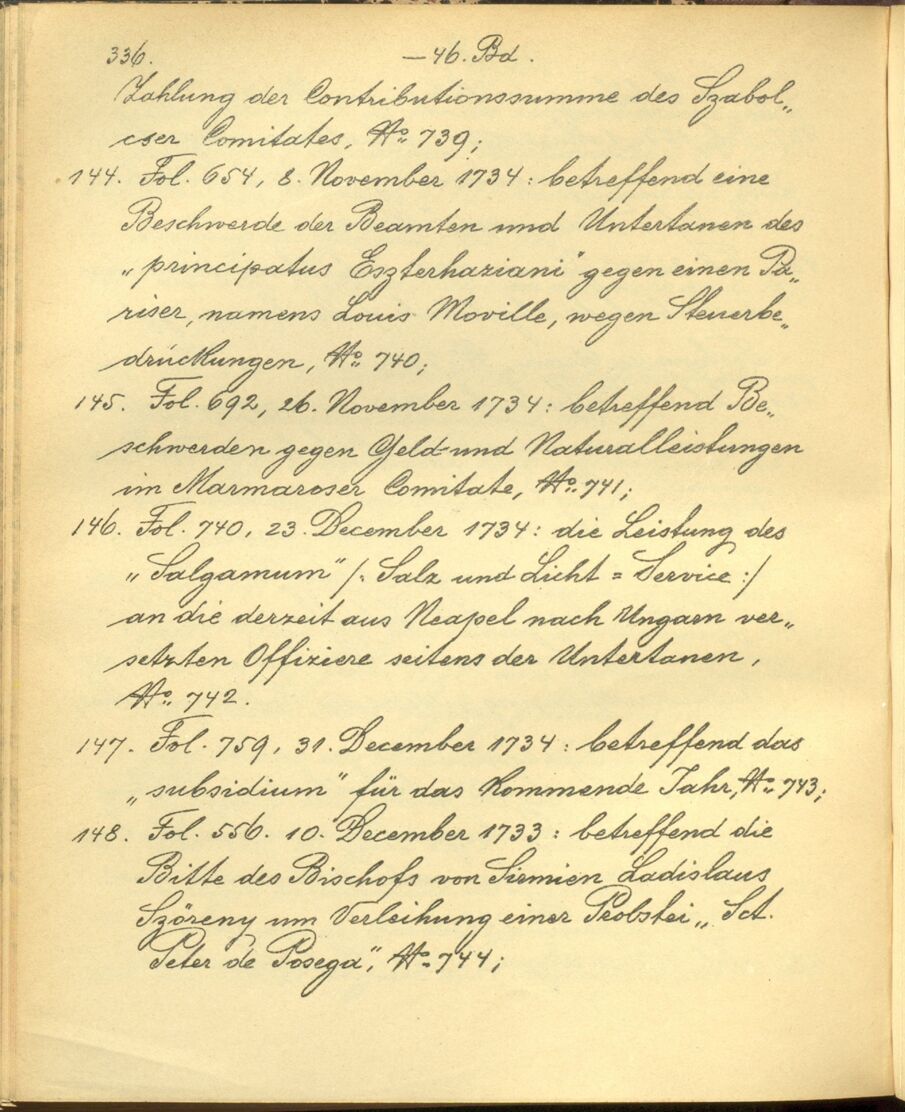 336. — 46. Bd.
Zahlung der Contributionssumme des Szabol„
cser Comitates, No. 739;
144. Fol. 654, 8. November 1734: betreffend eine
Beschwerde der Beamten und Untertanen des
„principatus Eszterhaziani" gegen einen Pa„
riser, namens Louis Moville, wegen Steuerbe„
drückungen, No. 740;
145. Fol. 692, 26. November 1734: betreffend Be„
schwerden gegen Geld- und Naturalleistungen
im Marmaroser Comitate, No. 741;
146. Fol. 740, 23. December 1734: die Leistung des
„Salgamum" /: Salz und Licht = Service :/
an die derzeit aus Neapel nach Ungarn ver„
setzten Offiziere seitens der Untertanen,
No. 742.
147. Fol. 759, 31. December 1734: betreffend das
„subsidium" für das kommende Jahr, No. 743;
148. Fol. 556. 10. December 1733: betreffend die
Bitte des Bischofs von Sirmien Ladislaus
Szöreny um Verleihung einer Probstei „Sct.
Peter de Posega", No. 744;